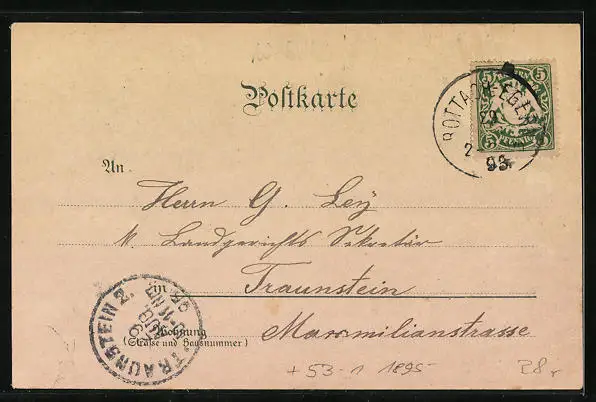 Postkarte
5 BAYERN 5
5 PFENNIG 5
ROTTACH-EGERN
2
98
An
Herrn G. Ley
k. Landgerichts Sekretär
in Traunstein
Maximilianstrasse
Wohnung
(Straße und Hausnummer)
TRAUNSTEIN 2.
+ 53-1 1895-
28,-